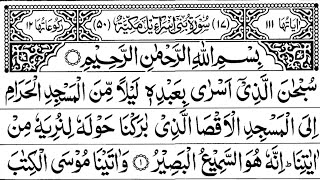 اٰیاتها ۱۱۱ (۱۷) سُوْرَةُ بَنِیْۤ اِسْرَآءِیْلَ مَكِّیَّةٌ (۵۰) رکوعاتها ۱۲
بِسْمِ اللّٰهِ الرَّحْمٰنِ الرَّحِیْمِ
سُبْحٰنَ الَّذِیْۤ اَسْرٰی بِعَبْدِهٖ لَیْلًا مِّنَ الْمَسْجِدِ الْحَرَامِ
اِلَی الْمَسْجِدِ الْاَقْصَا الَّذِیْ بٰرَكْنَا حَوْلَهٗ لِنُرِیَهٗ مِنْ
اٰیٰتِنَا ؕ اِنَّهٗ هُوَ السَّمِیْعُ الْبَصِیْرُ ۱ وَ اٰتَیْنَا مُوْسَی الْكِتٰبَ